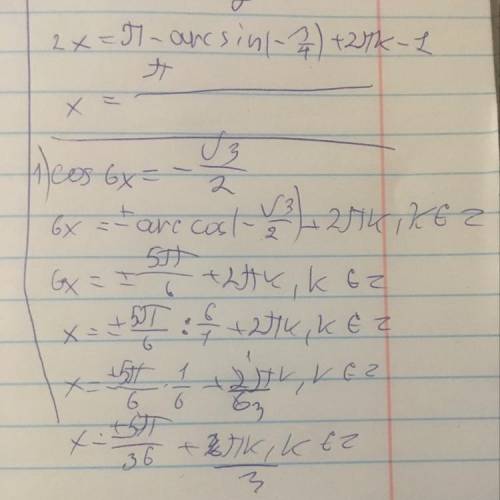 2x = π - arcsin(-3/4) + 2πk - 1
x = π
1) cos 6x = - √3/2
6x = ± arccos(-√3/2) + 2πk, k ∈ z
6x = ± 5π/6 + 2πk, k ∈ z
x = ± 5π/6 : 6/1 + 2πk, k ∈ z
x = ±5π/6 · 1/6 + 2πk/6 3, k ∈ z
x = ±5π/36 + πk/3, k ∈ z